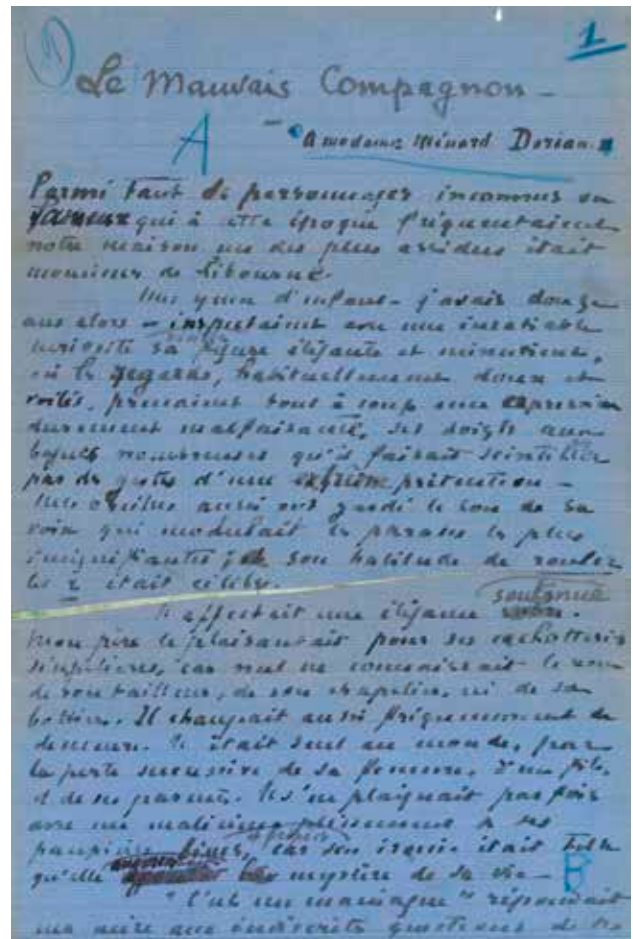 1
Le Mauvais Compagnon –
A
"A madame Ménard Dorian."
Parmi tant de personnages inconnus ou
fameux qui à cette époque fréquentaient
notre maison un des plus assidus était
monsieur de Libourne.
Mes yeux d'enfant – j'avais douze
ans alors – inspectaient avec une insatiable
curiosité sa figure élégante et minutieuse,
où les regards, habituellement doux et
voilés, prenaient tout à coup une expression
durement malfaisante, ses doigts aux
bagues nombreuses qu'il faisait scintiller
par des gestes d'une extrême prétention –
Mes oreilles aussi ont gardé le son de sa
voix qui modulait les phrases les plus
insignifiantes; son habitude de rouler
les r était célèbre.
soutenue
Il affectait une élégance
Mon père le plaisantait pour ses cachotteries
singulières, car nul ne connaissait le nom
de son tailleur, de son chapelier, ni de sa
bottier. Il changeait aussi fréquemment de
demeure. Il était seul au monde, par
la perte successive de sa femme, d'un fils,
et de ses parents. Il s'en plaignait parfois
avec un malicieux plissement à ses
paupières fines, car son ironie était telle
qu'elle augmentait le mystère de sa vie –
B
"C'est un maniaque" répondait
ma mère aux indiscrets questions de